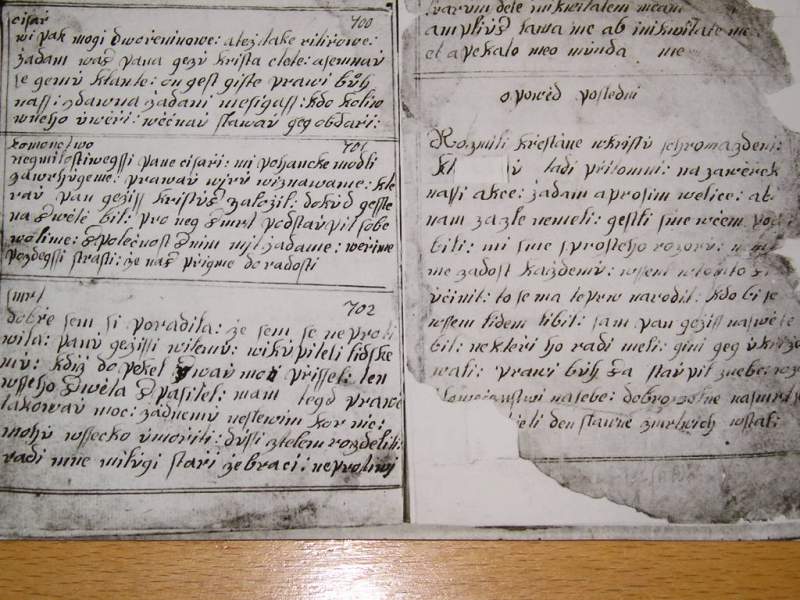 cisař 700
wi pak mogi dworeninowe: a též také ritirowe:
žadam waš pana gezu krista ctete: a semnau
se gemu klante: on gest giste prawi bůh
nass: zdawna zadani mesigass: kdo koliw
wneho uwěri: wěčnau slawau geg obdaři:
komonstwo 701
neymilostiwegssi pane cisaři: mi pohanske modli
zawrhugeme: prawau wiru wiznawame: kte
rau pan geziss kristus založil: dokud geste
na swětě bil: pro neg smrt podstaupil sobe
wolime: společnost snim mjt žadame: weřime
pozdegssi strasti: že nas přigme do radosti
smrt 702
dobře sem si poradila: že sem se neproti
wila: panu gezissi witemu: wikupiteli lidske
mu: kdiž do pekel swau moci přissel: ten
wsseho swěta spasitel: mam tegd prawe
takowau moc: žadnemu neslewim
mohu wssecko umořiti: dussi ztelem rozděliti:
radi mne milugi staři žebraci: neprotiwj
am plius lawa me ab inikwitate me
et a pekato meo munda me
opowěd posledni
Rozmili křestane wkristu schromazdeni:
tadi přitomni: na zawěrek
nassi akce: žadam a prosim welice: abi
nam za zle nemeli: gestli sme wčem
bili: mi sme sprosteho rozumu:
me zadost každemu: wssem
učinit: to se ma teprw narodit: kdo bi se
wssem lidem libil: sam pan geziss na swětě
bil: nekteři ho radi meli: gini geg ukřižo
wali: prawi bůh sa staupil znebe:
na sebe: dobrowolne na smrt
den slawne zmrtwich wstal: